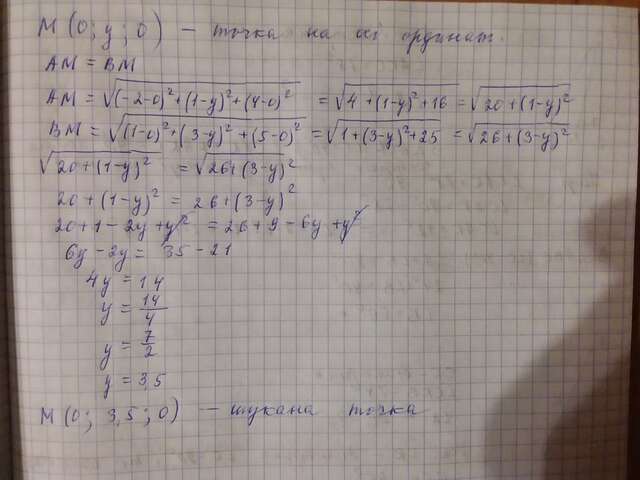 M(0; y; 0) — точка на осі ординат.
AM = BM
AM = √(-2-0)²+(1-y)²+(4-0)² = √4+(1-y)²+16 = √20+(1-y)²
BM = √(1-0)²+(3-y)²+(5-0)² = √1+(3-y)²+25 = √26+(3-y)²
√20+(1-y)² = √26+(3-y)²
20+(1-y)² = 26+(3-y)²
20+1-2y+y² = 26+9-6y+y²
6y-2y = 35-21
4y = 14
y = 14/4
y = 7/2
y = 3,5
M(0; 3,5; 0) — шукана точка